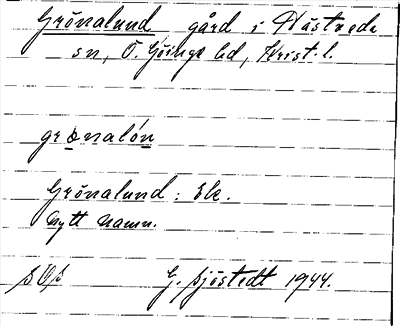 Grönalund gård i Hästveda
sn, Ö. Göinge hd, Krist. l.
grønalón
Grönalund: Ek.
Nytt namn.
G. Sjöstedt 1944.